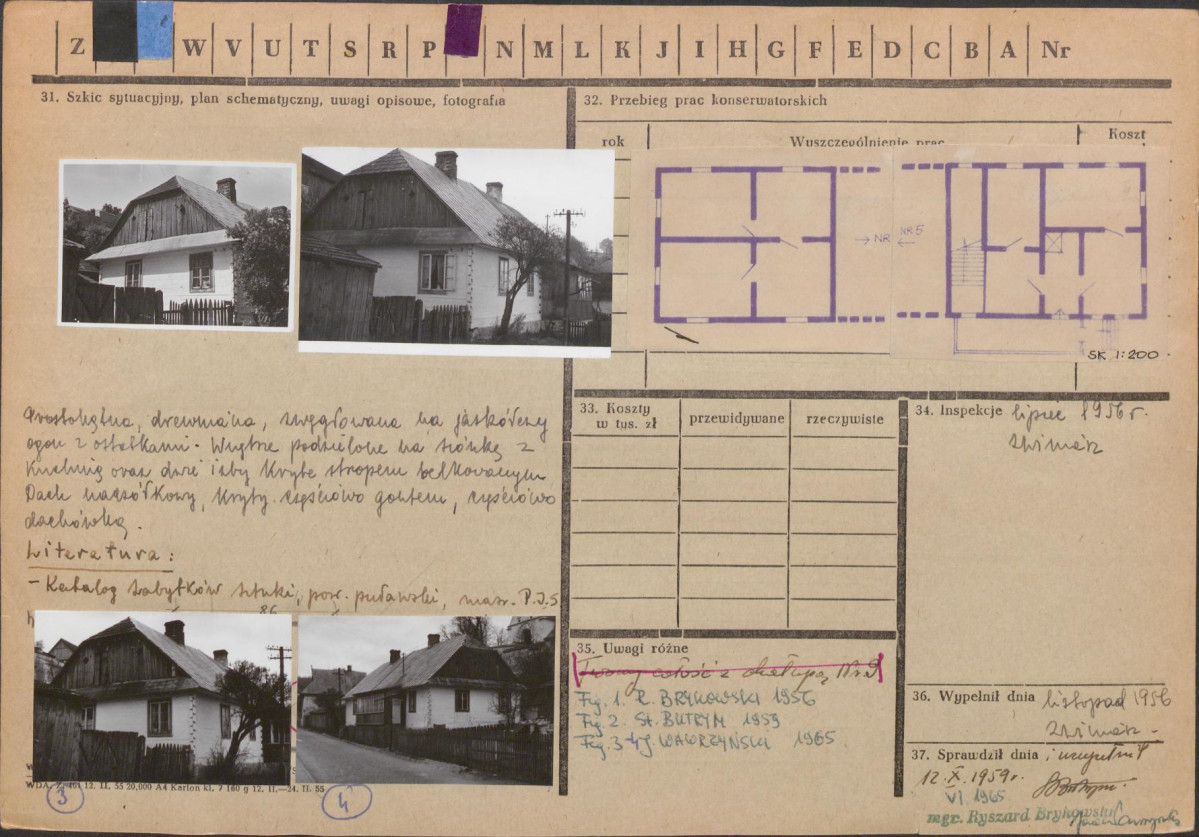 Z W V U T S R P N M L K J I H G F E D C B A Nr
31. Szkic sytuacyjny, plan schematyczny, uwagi opisowe, fotografia
32. Przebieg prac konserwatorskich
rok
Wyszczególnienie prac
Koszt
NR
NR 5
SK 1:200
Prostokątna, drewniana, zwęgłowana na jaskółczy
ogon z ostatkami. Wnętrze podzielone na sionkę z
kuchnią oraz dwie izby kryte stropem belkowanym
Dach naczółkowy, kryty częściowo gontem, częściowo
dachówką.
Literatura:
- Katalog zabytków sztuki, pow. puławski, P.I.S
86
WDA. 12. II. 55 20,000 A4 Karton kl. 7 160 g 12. II.—24. II. 55
3
4
33. Koszty
w tys. zł
przewidywane
rzeczywiste
34. Inspekcje lipiec 1956 r.
35. Uwagi różne
Tworzy całość z chałupą Nr 9
Fig. 1. R. BRYKOWSKI 1956
Fig. 2. St. BUTRYM 1959
Fig. 3-4 J WAWRZYŃSKI 1965
36. Wypełnił dnia listopad 1956
37. Sprawdził dnia i uzupełnił
12.X.1959r.
VI 1965
mgr. Ryszard Brykowski